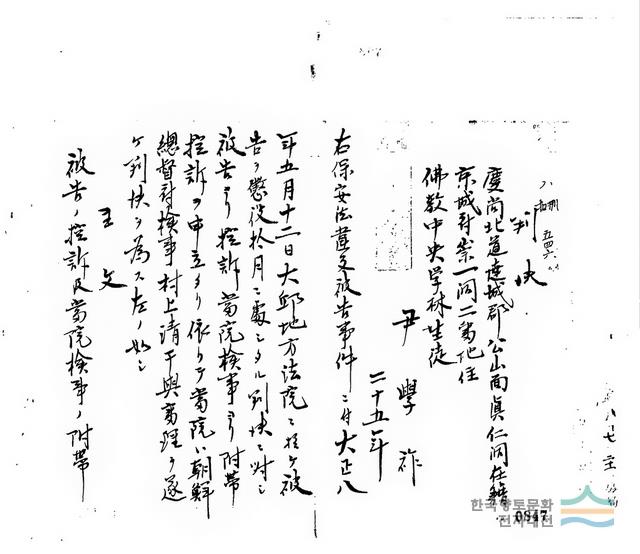 判決
慶尚北道達城郡公山面眞仁洞在籍
京城府崇一洞二番地住
佛教中央学林生徒
尹學祚
二十五年
右保安法違反被告事件ニ付大正八
年五月十二日大邱地方法院ニ於ケ被
告ヲ懲役拾月ニ處シタル判決ニ対シ
被告ヨリ控訴当院検事ヨリ附帯
控訴ヲ申立タリ依リテ当院ハ朝鮮
總督府検事村上清干與審理ヲ遂
ケ判決ヲ為ス左ノ如シ
主文
被告ノ控訴及当院検事ノ附帯
한국향토문화
전자대전
0847